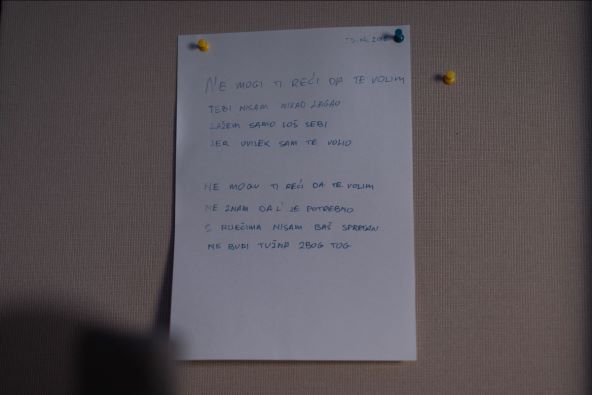 NE MOGI TI REĆI DA TE VOLIM
TEBI NISAM NIKAD LAGAO
LAŽEM SAMO LOŠ SEBI
JER UVIJEK SAM TE VOLIO
NE MOGU TI REĆI DA TE VOLIM
NE ZNAM DA L' JE POTREBNO
S RIJEČIMA NISAM BAŠ SPRETAN
NE BUDI TUŽNA ZBOG TOG